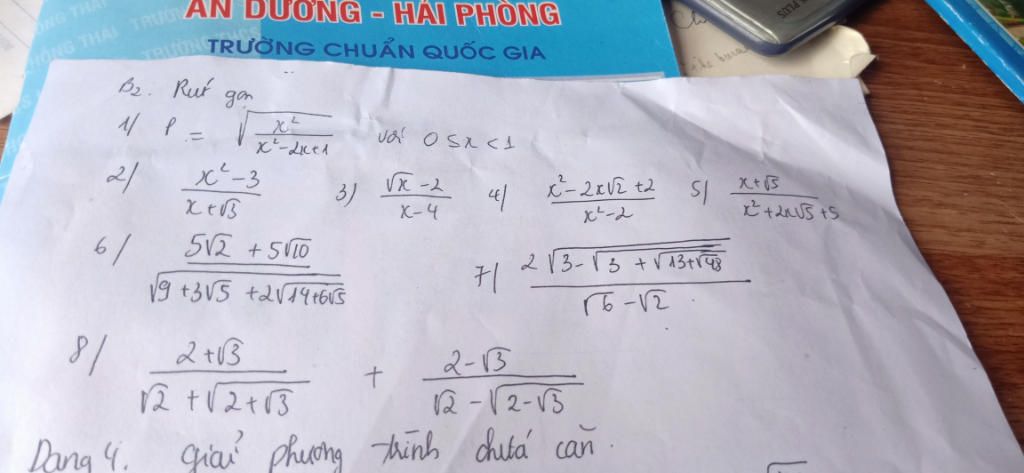 AN DƯƠNG - HẢI PHÒNG
TRƯỜNG CHUẨN QUỐC GIA
B2. Rút gọn
1/ P = √(x²/(x²-2x+1)) với 0 ≤ x < 1
2/ (x²-3)/(x+√3) 3) (√x-2)/(x-4) 4/ (x²-2x√2+2)/(x²-2) 5/ (x+√5)/(x²+2x√5+5)
6/ (5√2 + 5√10)/√(9+3√5+2√(14+6√5)) 7/ (2√(3-√(3+√(13+√48))))/(√6-√2)
8/ (2+√3)/(√2+√(2+√3)) + (2-√3)/(√2-√(2-√3))
Dạng 4. Giải phương trình chứa căn.